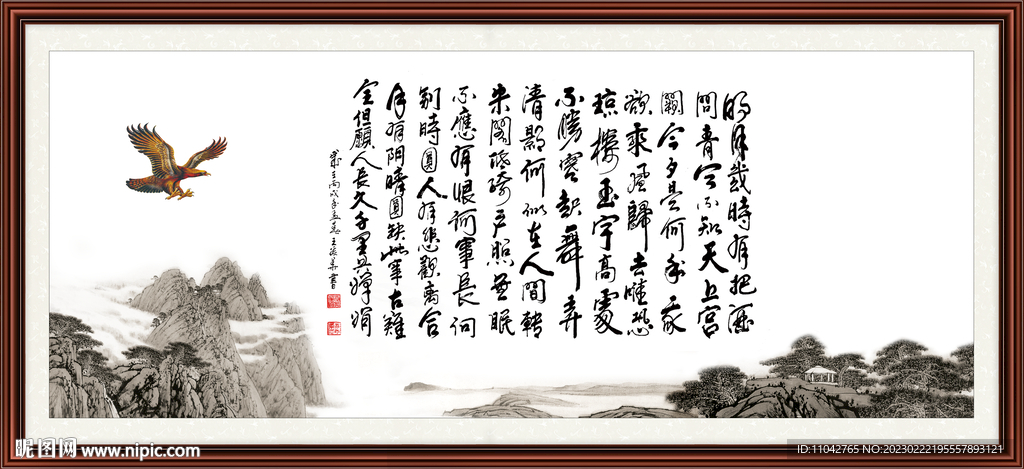 明月幾時有把酒
問青天不知天上宮
闕今夕是何年我
欲乘風歸去唯恐
琼樓玉宇高處
不勝寒起舞弄
清影何似在人間轉
朱閣低綺戶照無眠
不應有恨何事長向
別時圓人有悲歡離合
月有阴晴圓缺此事古難
全但願人長久千里共嬋娟
丙戌年孟春王書
昵图网 www.nipic.com
ID:11042765 NO:20230222195557893121